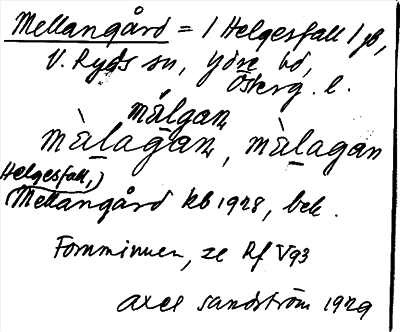 Mellangård = / Helgesfall / gd,
V. Ryds sn, Ydre hd,
Österg. l.
målgan
màlagan, màlagan
Helgesfall,)
(Mellangård kb 1928, bek.
Fornminnen, se Rf V93
Axel Sandström 1929